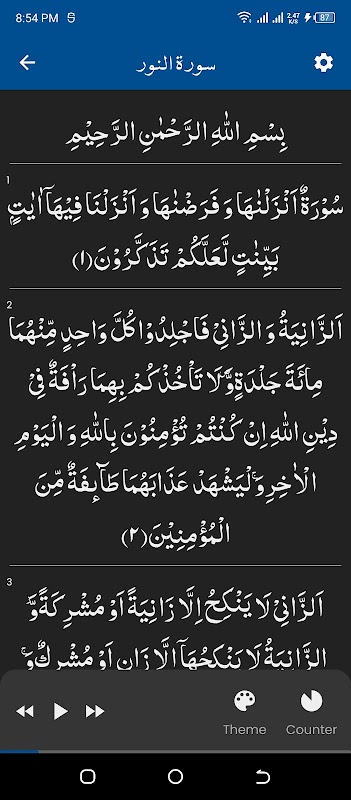 8:54 PM
2.47 K/S
87
سورة النور
بِسْمِ اللهِ الرَّحْمٰنِ الرَّحِيْمِ
1
سُوْرَةٌ اَنْزَلْنٰهَا وَ فَرَضْنٰهَا وَ اَنْزَلْنَا فِيْهَاۤ اٰيٰتٍۭ
بَيِّنٰتٍ لَّعَلَّكُمْ تَذَكَّرُوْنَ(۱)
2
اَلزَّانِيَةُ وَ الزَّانِیْ فَاجْلِدُوْا كُلَّ وَاحِدٍ مِّنْهُمَا
مِائَةَ جَلْدَةٍ۪-وَّ لَا تَاْخُذْكُمْ بِهِمَا رَاْفَةٌ فِیْ
دِيْنِ اللهِ اِنْ كُنْتُمْ تُؤْمِنُوْنَ بِاللهِ وَ الْيَوْمِ
الْاٰخِرِۚ-وَ لْيَشْهَدْ عَذَابَهُمَا طَآىٕفَةٌ مِّنَ
الْمُؤْمِنِيْنَ(۲)
3
اَلزَّانِیْ لَا يَنْكِحُ اِلَّا زَانِيَةً اَوْ مُشْرِكَةً٘-وَّ
الزَّانِيَةُ لَا يَنْكِحُهَاۤ اِلَّا زَانٍ اَوْ مُشْرِكٌۚ-وَ
Theme
Counter